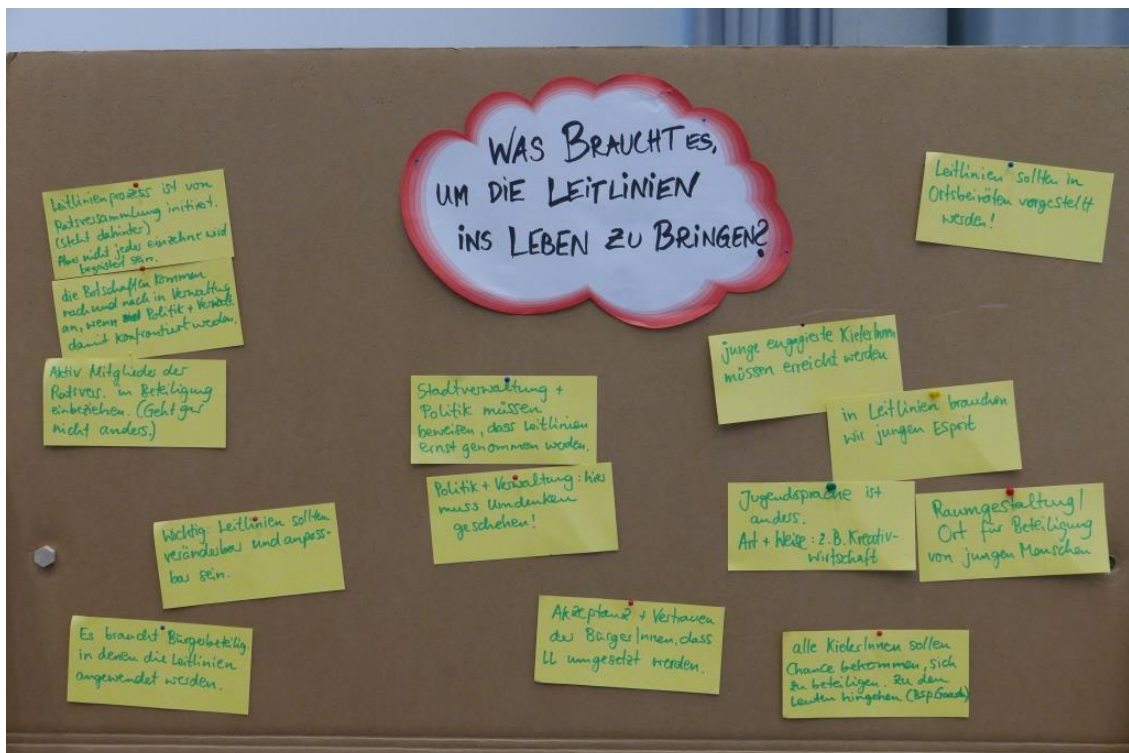 WAS BRAUCHT ES,
UM DIE LEITLINIEN
INS LEBEN ZU BRINGEN?
Leitlinienprozess ist von
Ratsversammlung initiiert.
(steht dahinter)
Aber nicht jeder einzelne wird
begeistert sein.
die Botschaften kommen
nach und nach in Verwaltung
an, wenn Politik + Verwalt.
damit konfrontiert werden.
Aktiv Mitglieder der
Ratsvers. in Beteiligung
einbeziehen. (Geht gar
nicht anders.)
Wichtig: Leitlinien sollten
veränderbar und anpass-
bar sein.
Es braucht Bürgerbeteilig.
in denen die Leitlinien
angewendet werden.
Stadtverwaltung +
Politik müssen
beweisen, dass Leitlinien
ernst genommen werden.
Politik + Verwaltung: hier
muss Umdenken
geschehen!
Akzeptanz + Vertrauen
der BürgerInnen, dass
LL umgesetzt werden.
Leitlinien sollten in
Ortsbeiräten vorgestellt
werden!
junge engagierte KielerInnen
müssen erreicht werden
in Leitlinien brauchen
wir jungen Esprit
Jugendsprache ist
anders.
Art + Weise: z.B. Kreativ-
wirtschaft
Raumgestaltung/
Ort für Beteiligung
von jungen Menschen
alle KielerInnen sollen
Chance bekommen, sich
zu beteiligen. Zu den
Leuten hingehen (Bsp.